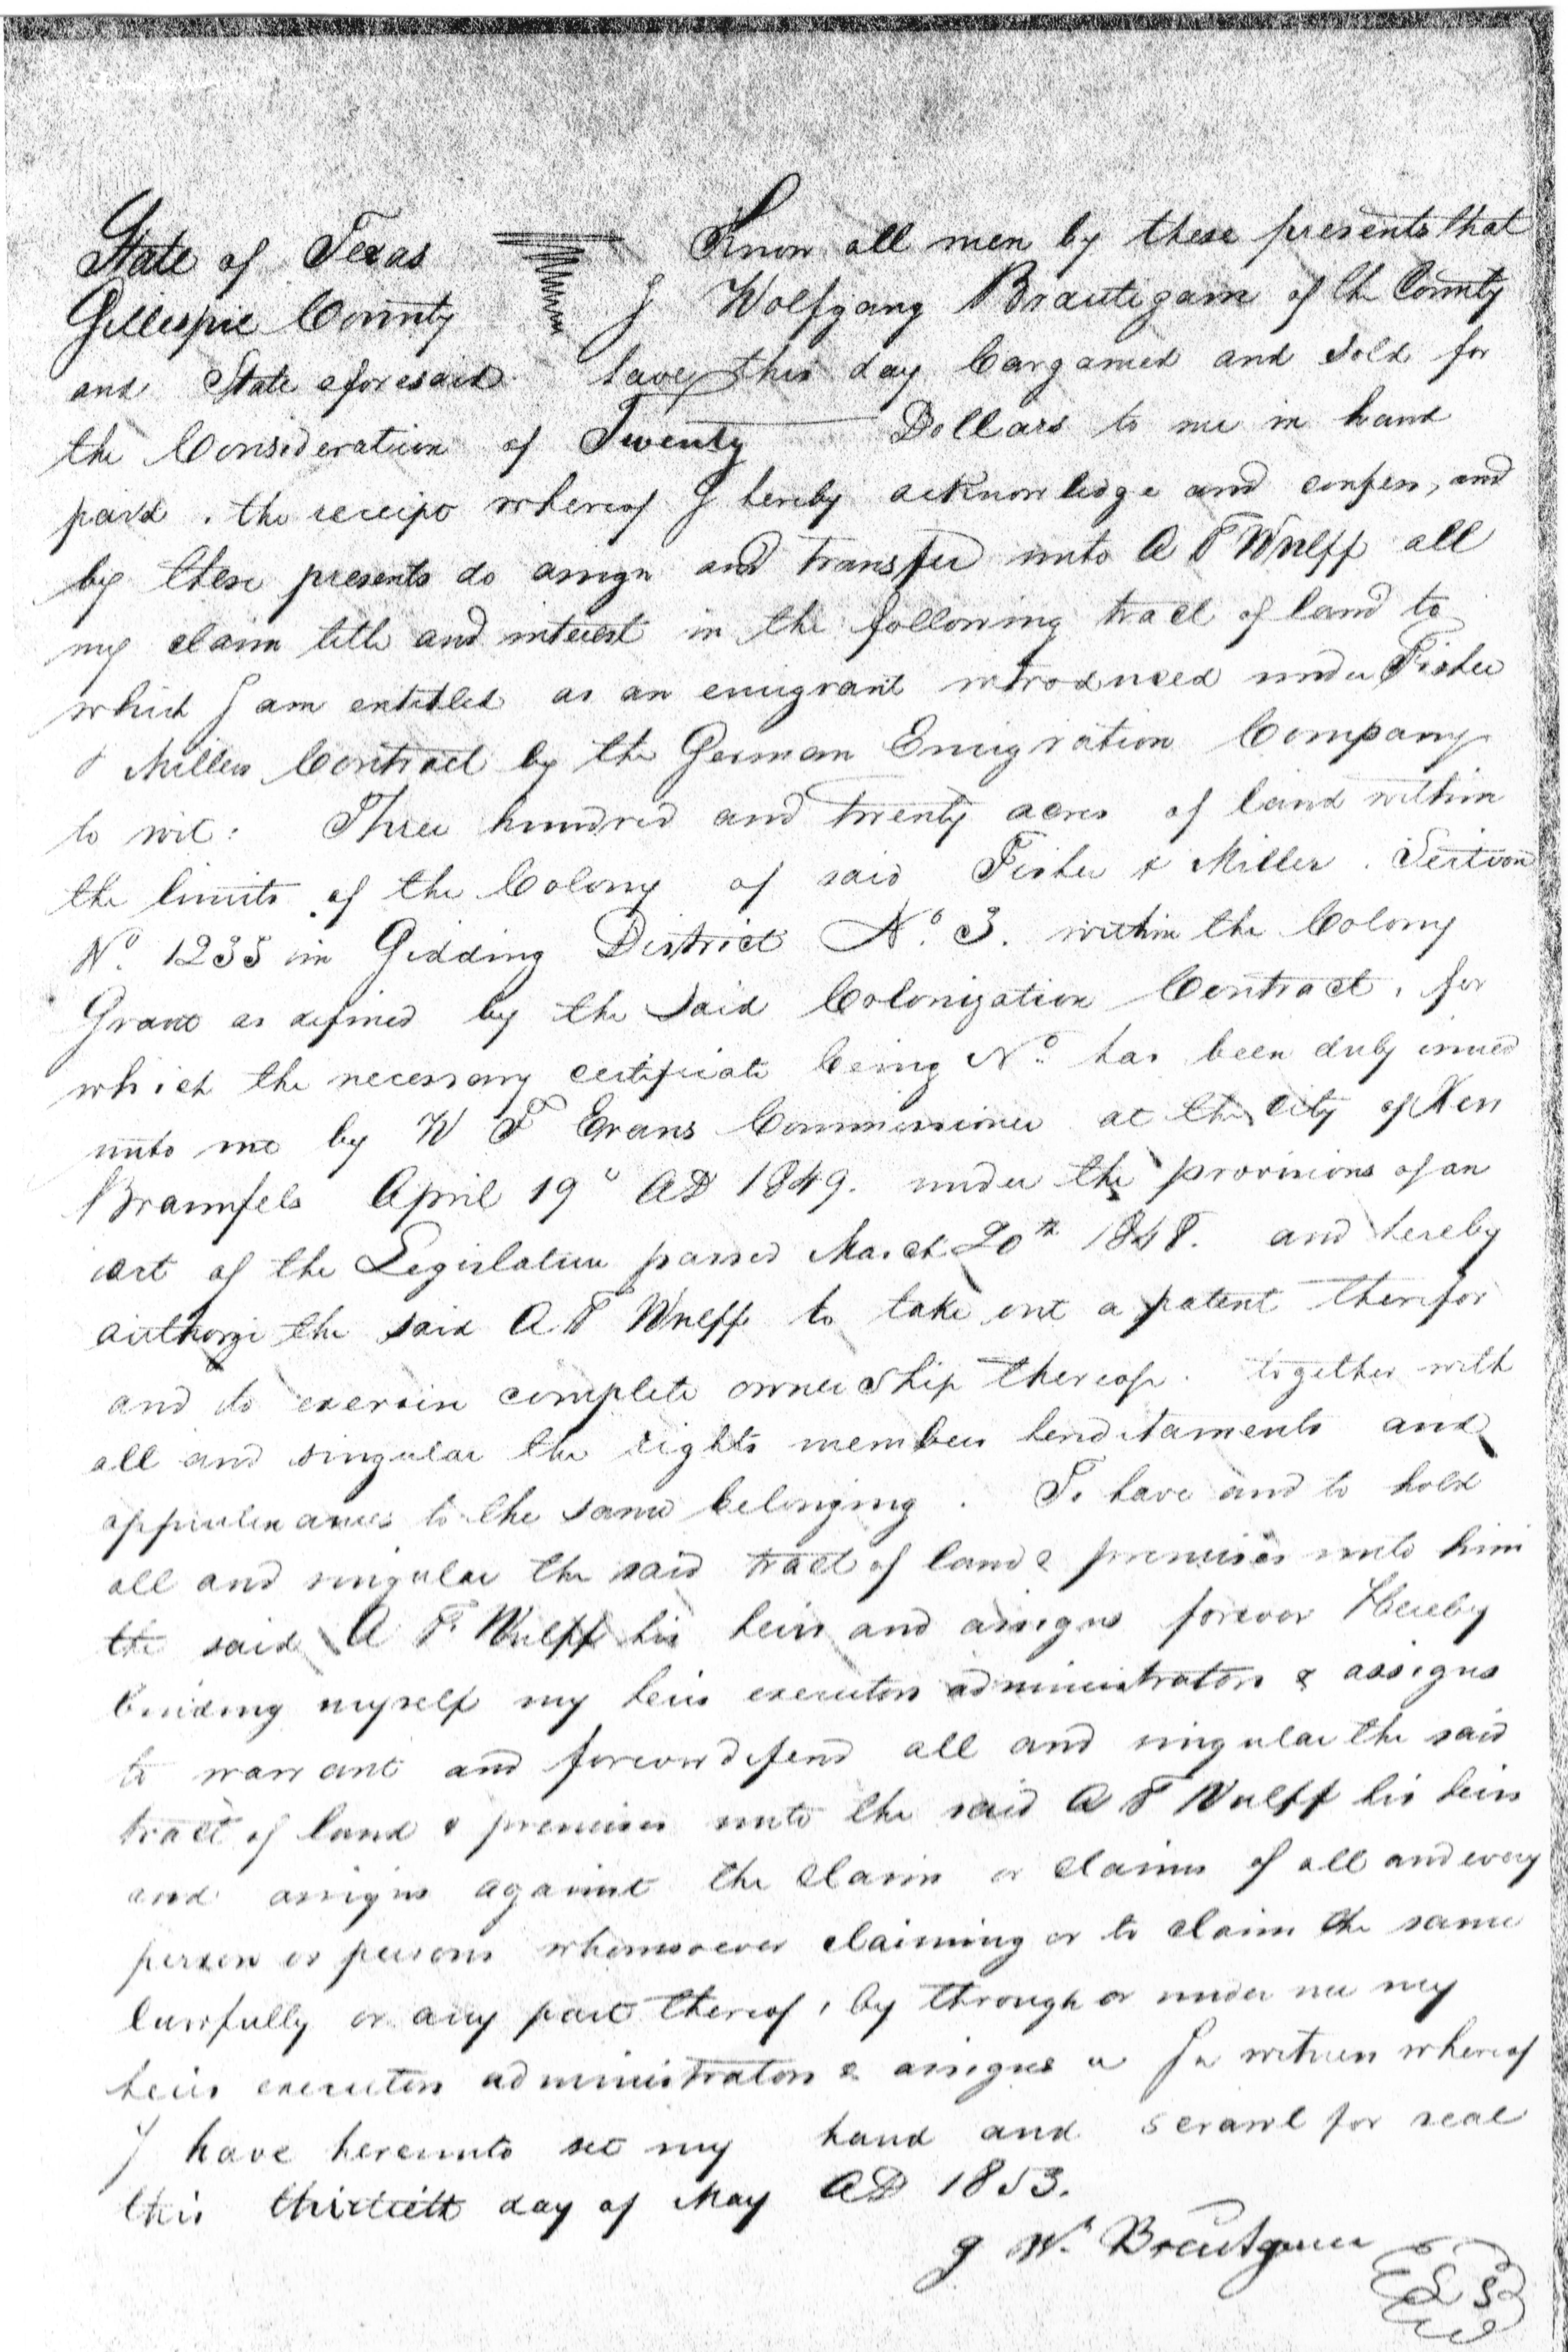 State of Texas Know all men by these presents that
Gillespie County I Wolfgang Brautigam of the County
and State aforesaid have this day bargained and sold for
the Consideration of Twenty Dollars to me in hand
paid. the receipt whereof I hereby acknowledge and confess, and
by these presents do assign and transfer unto A F Wulff all
my claim title and interest in the following tract of land to
which I am entitled as an emigrant introduced under Fisher
& Millers Contract by the German Emigration Company
to wit: Three hundred and twenty acres of land within
the limits of the Colony of said Fisher & Miller. Section
No. 1235 in Gidding District No. 3. within the Colony
Grant as defined by the said Colonization Contract, for
which the necessary certificate being No. has been duly issued
unto me by W F Evans Commissioner at the city of New
Braunfels April 19th AD 1849. under the provisions of an
act of the Legislature passed March 20th 1848. and hereby
authorize the said A F Wulff to take out a patent therefor
and to exercise complete ownership thereof. together with
all and singular the rights members hereditaments and
appurtenances to the same belonging. To have and to hold
all and singular the said tract of land & premises unto him
the said A F. Wulff his heirs and assigns forever Hereby
binding myself my heirs executors administrators & assigns
to warrant and forever defend all and singular the said
tract of land & premises unto the said A F Wulff his heirs
and assigns against the claim or claims of all and every
person or persons whomsoever claiming or to claim the same
lawfully or any part thereof, by through or under me my
heirs executors administrators & assigns In witness whereof
I have hereunto set my hand and scrawl for seal
this thirtieth day of May AD 1853.
W. Breutgam
L S